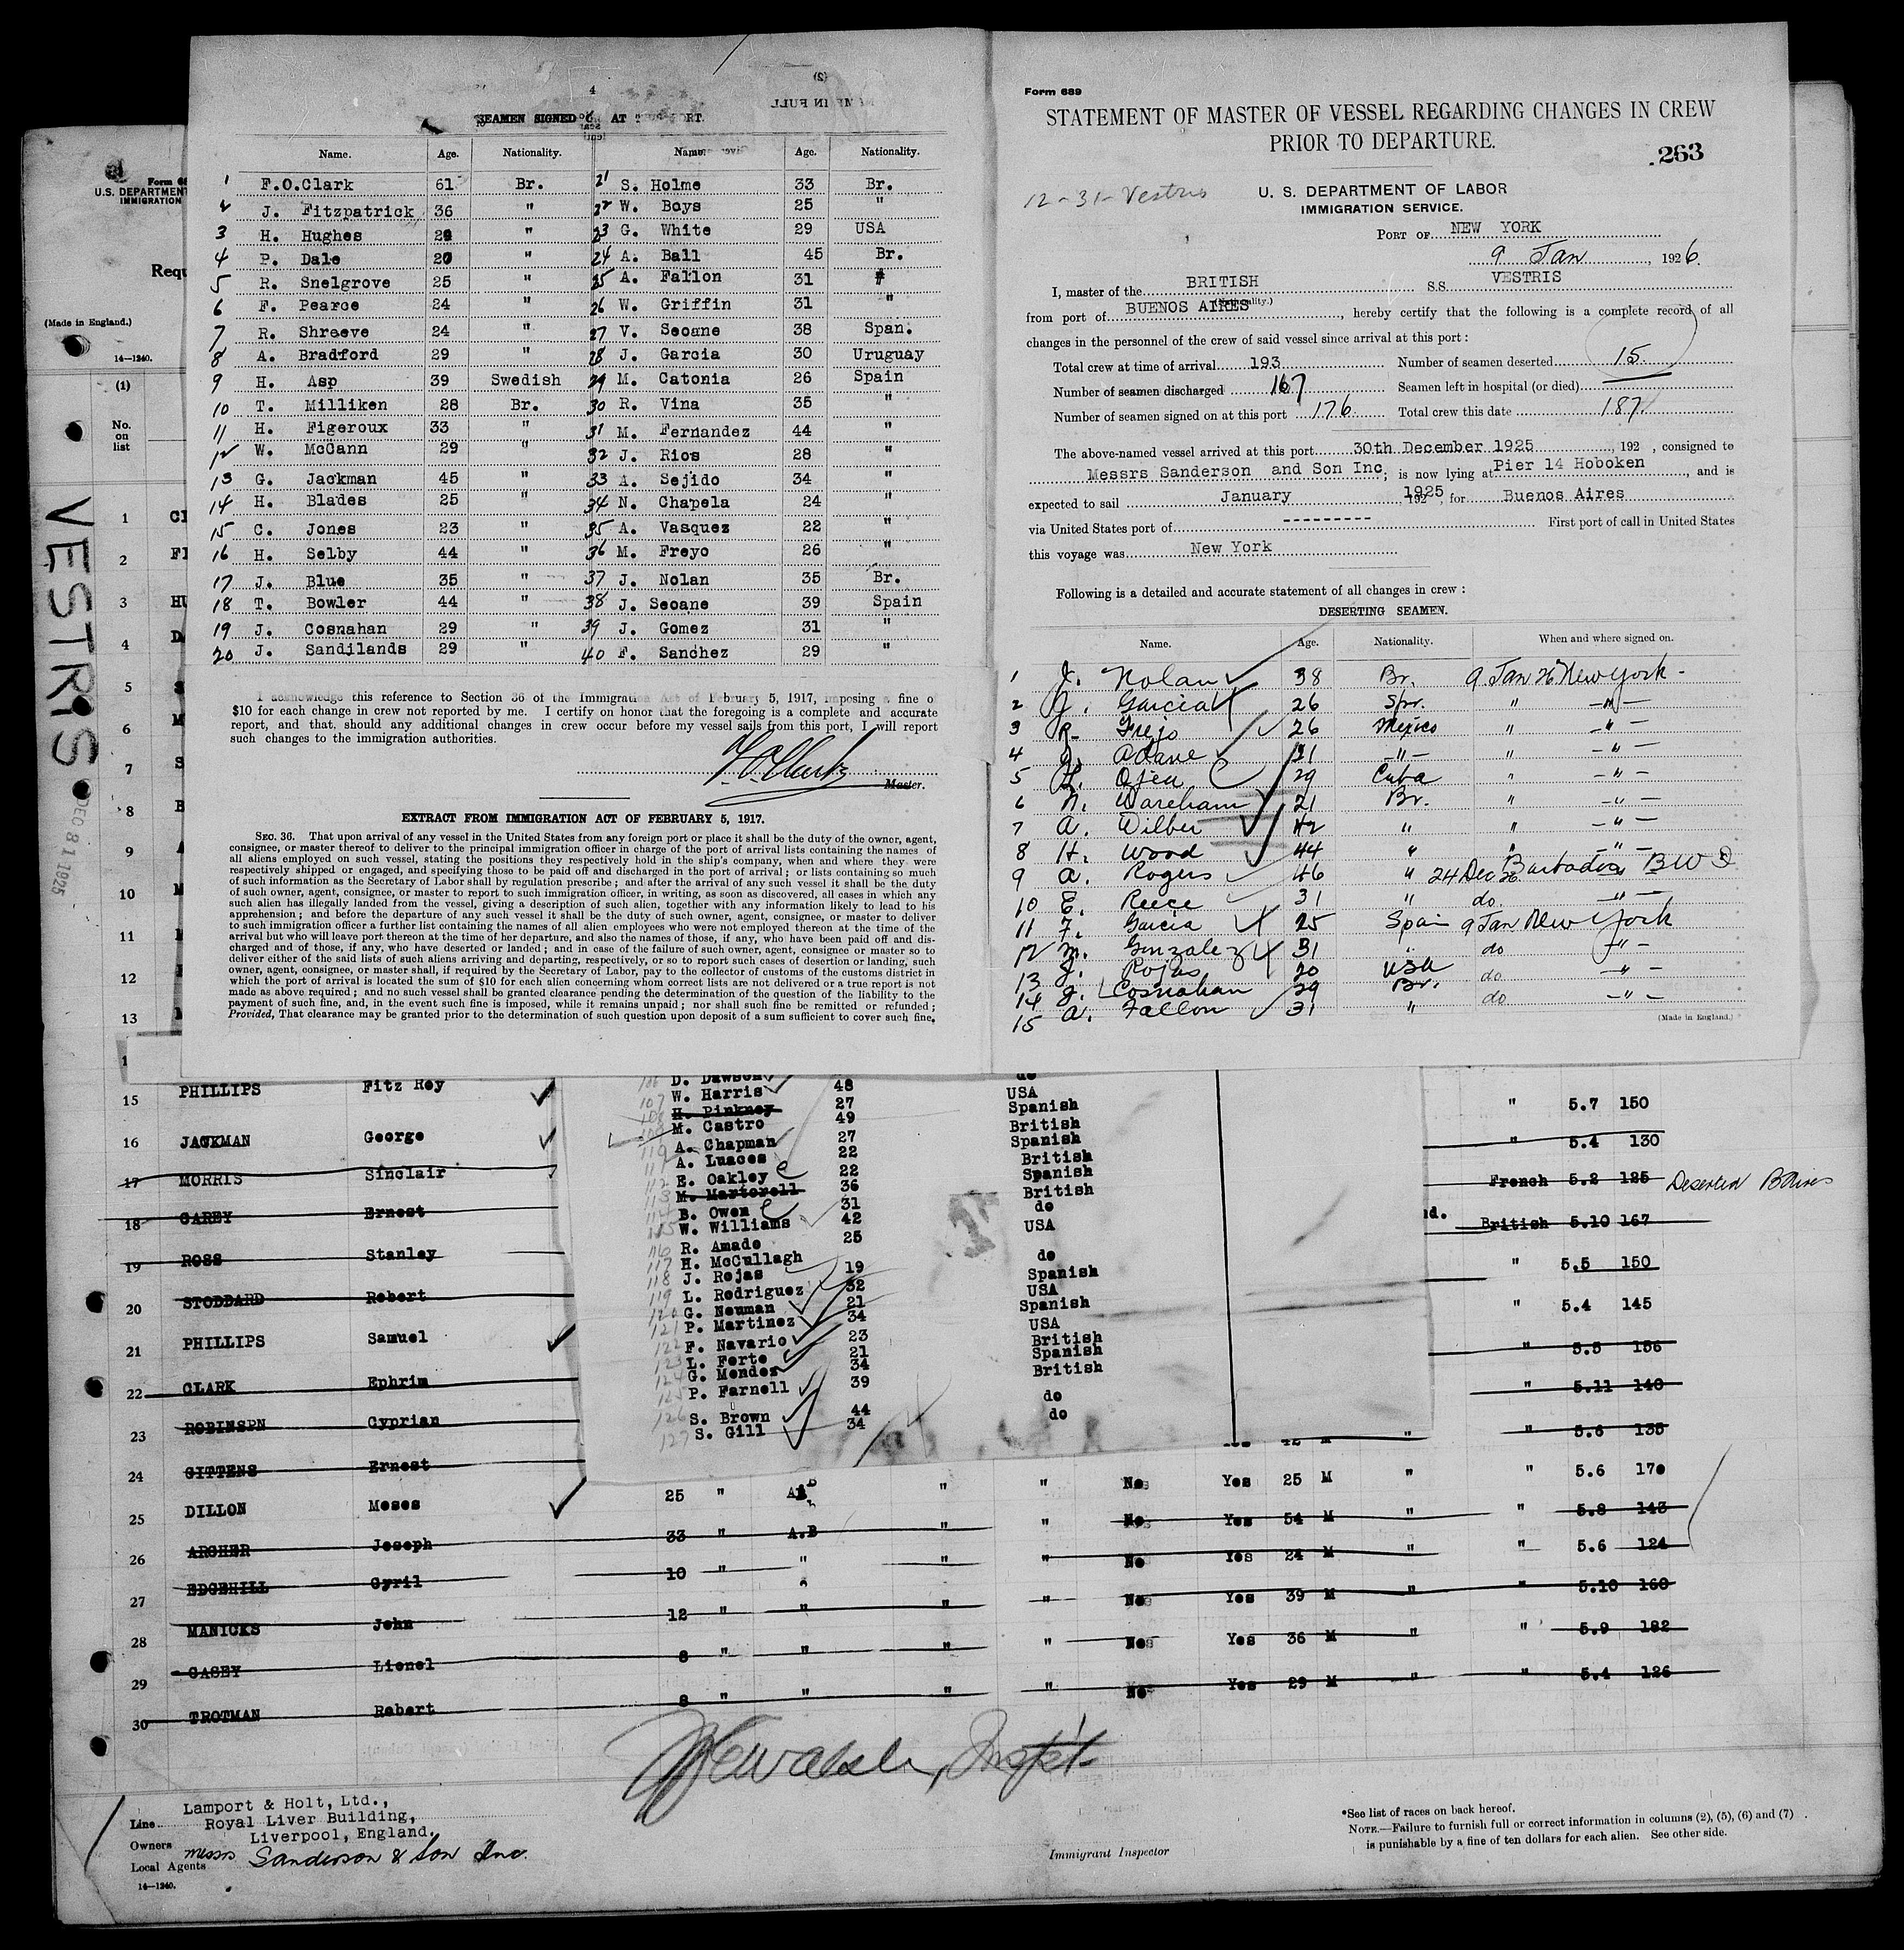 (2)
4
SEAMEN SIGNED AT PORT.
Name. Age. Nationality. Name. Age. Nationality.
1 F.O.Clark 61 Br. 21 S. Holme 33 Br.
2 J. Fitzpatrick 36 " 22 W. Boys 25 "
3 H. Hughes " 23 G. White 29 USA
4 P. Dale " 24 A. Ball 45 Br.
5 R. Snelgrove 25 " 25 A. Fallon 31 "
6 F. Pearce 24 " 26 W. Griffin 31 "
7 R. Shreeve 24 " 27 V. Seoane 38 Span.
8 A. Bradford 29 " 28 J. Garcia 30 Uruguay
9 H. Asp 39 Swedish 29 M. Catonia 26 Spain
10 T. Milliken 28 Br. 30 R. Vina 35 "
11 H. Figeroux 33 " 31 M. Fernandez 44 "
12 W. McCann 29 " 32 J. Rios 28 "
13 G. Jackman 45 " 33 A. Sejido 34 "
14 H. Blades 25 " 34 N. Chapela 24 "
15 C. Jones 23 " 35 A. Vasquez 22 "
16 H. Selby 44 " 36 M. Freyo 26 "
17 J. Blue 35 " 37 J. Nolan 35 Br.
18 T. Bowler 44 " 38 J. Seoane 39 Spain
19 J. Cosnahan 29 " 39 J. Gomez 31 "
20 J. Sandilands 29 " 40 F. Sanchez 29 "
I acknowledge this reference to Section 36 of the Immigration Act of February 5, 1917, imposing a fine of
$10 for each change in crew not reported by me. I certify on honor that the foregoing is a complete and accurate
report, and that should any additional changes in crew occur before my vessel sails from this port, I will report
such changes to the immigration authorities.
F.O.Clark
Master.
EXTRACT FROM IMMIGRATION ACT OF FEBRUARY 5, 1917.
SEC. 36. That upon arrival of any vessel in the United States from any foreign port or place it shall be the duty of the owner, agent,
consignee, or master thereof to deliver to the principal immigration officer in charge of the port of arrival lists containing the names of
all aliens employed on such vessel, stating the positions they respectively hold in the ship's company, when and where they were
respectively shipped or engaged, and specifying those to be paid off and discharged in the port of arrival; or lists containing so much
of such information as the Secretary of Labor shall by regulation prescribe; and after the arrival of any such vessel it shall be the duty
of such owner, agent, consignee, or master to report to such immigration officer, in writing, as soon as discovered, all cases in which any
such alien has illegally landed from the vessel, giving a description of such alien, together with any information likely to lead to his
apprehension; and before the departure of any such vessel it shall be the duty of such owner, agent, consignee, or master to deliver
to such immigration officer a further list containing the names of all alien employees who were not employed thereon at the time of the
arrival but who will leave port thereon at the time of her departure, and also the names of those, if any, who have been paid off and dis-
charged and of those, if any, who have deserted or landed; and in case of the failure of such owner, agent, consignee or master so to
deliver either of the said lists of such aliens arriving and departing, respectively, or so to report such cases of desertion or landing, such
owner, agent, consignee, or master shall, if required by the Secretary of Labor, pay to the collector of customs of the customs district in
which the port of arrival is located the sum of $10 for each alien concerning whom correct lists are not delivered or a true report is not
made as above required; and no such vessel shall be granted clearance pending the determination of the question of the liability to the
payment of such fine, and, in the event such fine is imposed, while it remains unpaid; nor shall such fine be remitted or refunded;
Provided, That clearance may be granted prior to the determination of such question upon deposit of a sum sufficient to cover such fine.
Form 689
STATEMENT OF MASTER OF VESSEL REGARDING CHANGES IN CREW
PRIOR TO DEPARTURE.
263
12-31-Vestris
U. S. DEPARTMENT OF LABOR
IMMIGRATION SERVICE.
PORT OF NEW YORK
9 Jan, 1926.
I, master of the BRITISH S.S. VESTRIS
(Nationality.)
from port of BUENOS AIRES, hereby certify that the following is a complete record of all
changes in the personnel of the crew of said vessel since arrival at this port:
Total crew at time of arrival 193 Number of seamen deserted 15.
Number of seamen discharged 167 Seamen left in hospital (or died)
Number of seamen signed on at this port 176 Total crew this date 187.
The above-named vessel arrived at this port 30th December 1925, 192 , consigned to
Messrs Sanderson and Son Inc; is now lying at Pier 14 Hoboken, and is
expected to sail January 1925 192 , for Buenos Aires
via United States port of --------- First port of call in United States
this voyage was New York
Following is a detailed and accurate statement of all changes in crew:
DESERTING SEAMEN.
Name. Age. Nationality. When and where signed on.
1 J. Nolan 38 Br. 9 Jan 26 New York -
2 J. Garcia 26 Spn. " -"-
3 R. 26 Mexico " -"-
4 J. 21 -"- " -"-
5 Ojea 29 Cuba " -"-
6 N. Wareham 21 Br. " -"-
7 A. Wilber 42 " " -"-
8 H. Wood 44 " " -"-
9 A. Rogers 46 " 24 Dec Barbados BW
10 E. Reece 31 " do. -"-
11 F. Garcia 25 Spain 9 Jan New York
12 M. Gonzalez 31 " do -"-
13 J. Rojas 20 USA do. -"-
14 J. Cosnahan 29 Br. do -"-
15 A. Fallon 31 "
(Made in England.)
U.S. DEPARTMENT
IMMIGRATION
Requ
(Made in England.)
14—1240.
(1)
No.
on
list
VESTRIS
DEC 31 1925
1
2
3
4
5
6
7
8
9
10
11
12
13
15 PHILLIPS Fitz Roy " 5.7 150
16 JACKMAN George " 5.4 130
17 MORRIS Sinclair French 5.2 125 Deserted BAires
18 CAREY Ernest British 5.10 167
19 ROSS Stanley " 5.5 150
20 STODDARD Robert " 5.4 145
21 PHILLIPS Samuel " 5.5 156
22 CLARK Ephrim " 5.11 140
23 ROBINSPN Cyprian " 5.6 135
24 GITTENS Ernest " 5.6 170
25 DILLON Moses 25 " " " No Yes 25 M " " 5.8 143
26 ARCHER Joseph 33 " A.B " " No Yes 54 M " " 5.6 124
27 EDGEHILL Cyril 10 " " " " No Yes 24 M " " 5.10 160
28 MANICKS John 12 " " " " No Yes 39 M " " 5.9 182
29 CASEY Lionel 8 " " " " No Yes 36 M " " 5.4 126
30 TROTMAN Robert 8 " " " " No Yes 29 M "
106 D. Dawson 48 do
107 W. Harris 27 USA
108 H. Pinkney 49 Spanish
109 M. Castro British
110 A. Chapman 27 Spanish
111 A. Luaces 22 British
112 E. Oakley 22 Spanish
113 M. Martorell 36 British
114 B. Owen 31 do
115 W. Williams 42 USA
116 R. Amado 25
117 H. McCullagh do
118 J. Rojas 19 Spanish
119 L. Rodriguez 32 USA
120 G. Neuman 21 Spanish
121 P. Martinez 34 USA
122 F. Navario 23 British
123 L. Forte 21 Spanish
124 G. Mendes 34 British
125 P. Farnell 39 do
126 S. Brown 44 do
127 S. Gill 34
Inspt.
Line Lamport & Holt, Ltd.,
Royal Liver Building,
Owners Liverpool, England.
Local Agents Messrs Sanderson & Son Inc.
14—1240.
Immigrant Inspector
*See list of races on back hereof.
NOTE.—Failure to furnish full or correct information in columns (2), (5), (6) and (7)
is punishable by a fine of ten dollars for each alien. See other side.